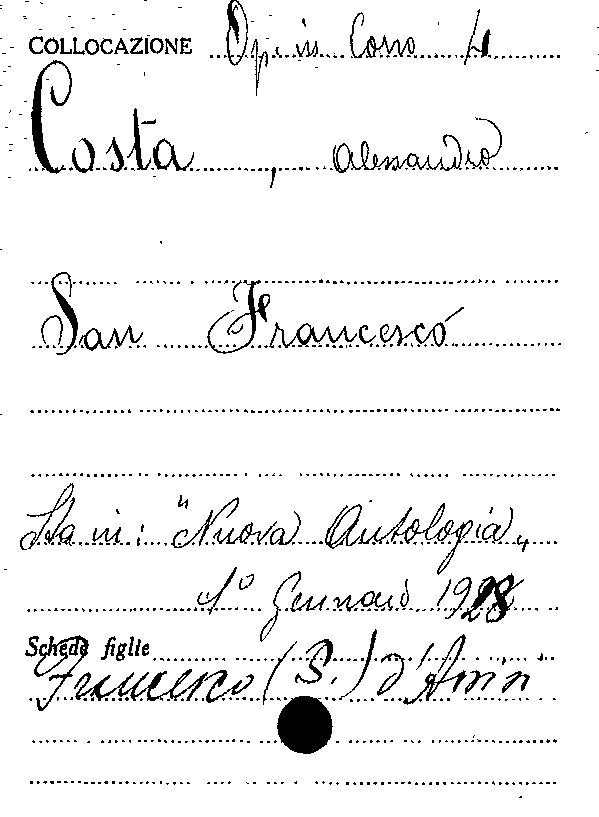 COLLOCAZIONE Op. in Corso 4
Costa, Alessandro
San Francesco
Sta in: "Nuova Antologia„
1° Gennaio 1928
Schede figlie
Francesco (S.) d'Assisi